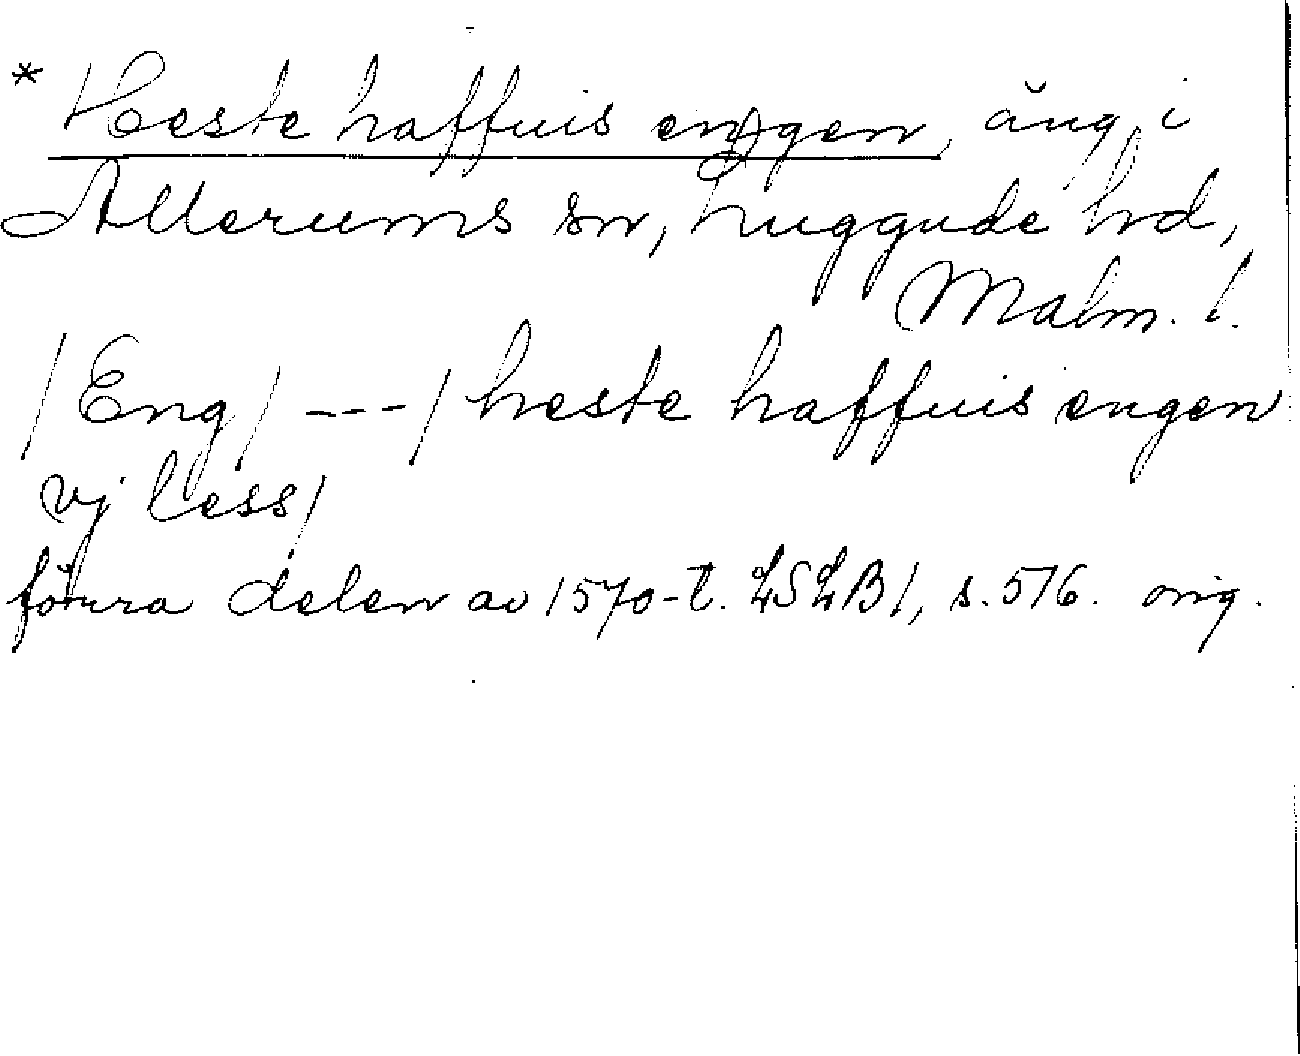 * Heste haffuis engen, äng i
Allerums sn, Luggude hd,
Malm. l.
/Eng/ ---/ heste haffuis engen
vj less/
förra delen av 1570-t. LSLB1, s. 576. orig.